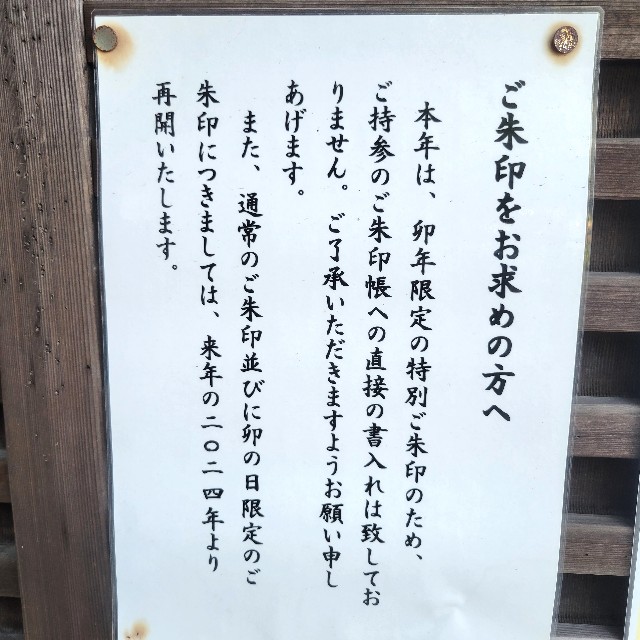 ご朱印をお求めの方へ
本年は、卯年限定の特別ご朱印のため、
ご持参のご朱印帳への直接の書入れは致してお
りません。ご了承いただきますようお願い申し
あげます。
また、通常のご朱印並びに卯の日限定のご
朱印につきましては、来年の二〇二四年より
再開いたします。